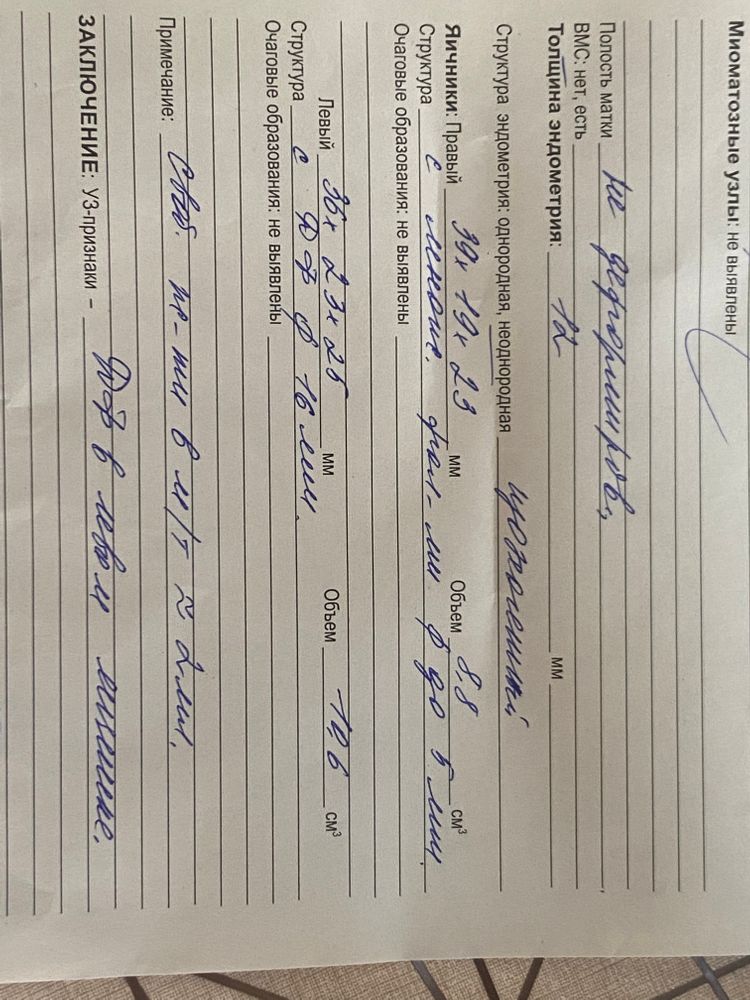 Миоматозные узлы: не выявлены
Полость матки не деформиров.,
ВМС: нет, есть
Толщина эндометрия: 12 мм
Структура эндометрия: однородная, неоднородная
Яичники: Правый 39х19х23 мм Объем 8,8 см³
Структура с мелкие. фол-ми ф до 5 мм.
Очаговые образования: не выявлены
Левый 36х23х25 мм Объем см³
Структура с ДФ ф 16 мм.
Очаговые образования: не выявлены
Примечание: своб. в м/т ≈ 2 мл.
ЗАКЛЮЧЕНИЕ: УЗ-признаки – ДФ в левом яичнике.